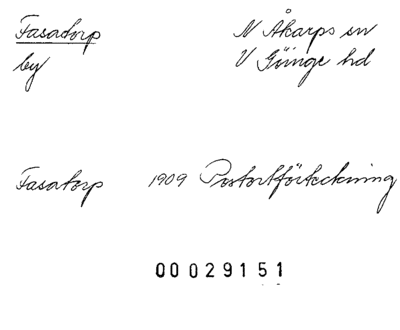 Fasatorp N Åkarps sn
by V Göinge hd
Fasatorp 1909 Postortförteckning
00029151